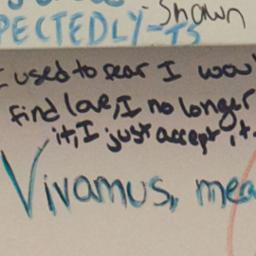 -Shawn
PECTEDLY-TS
I used to fear I wou
find love, I no longer
it, I just accept it.
Vivamus, mea